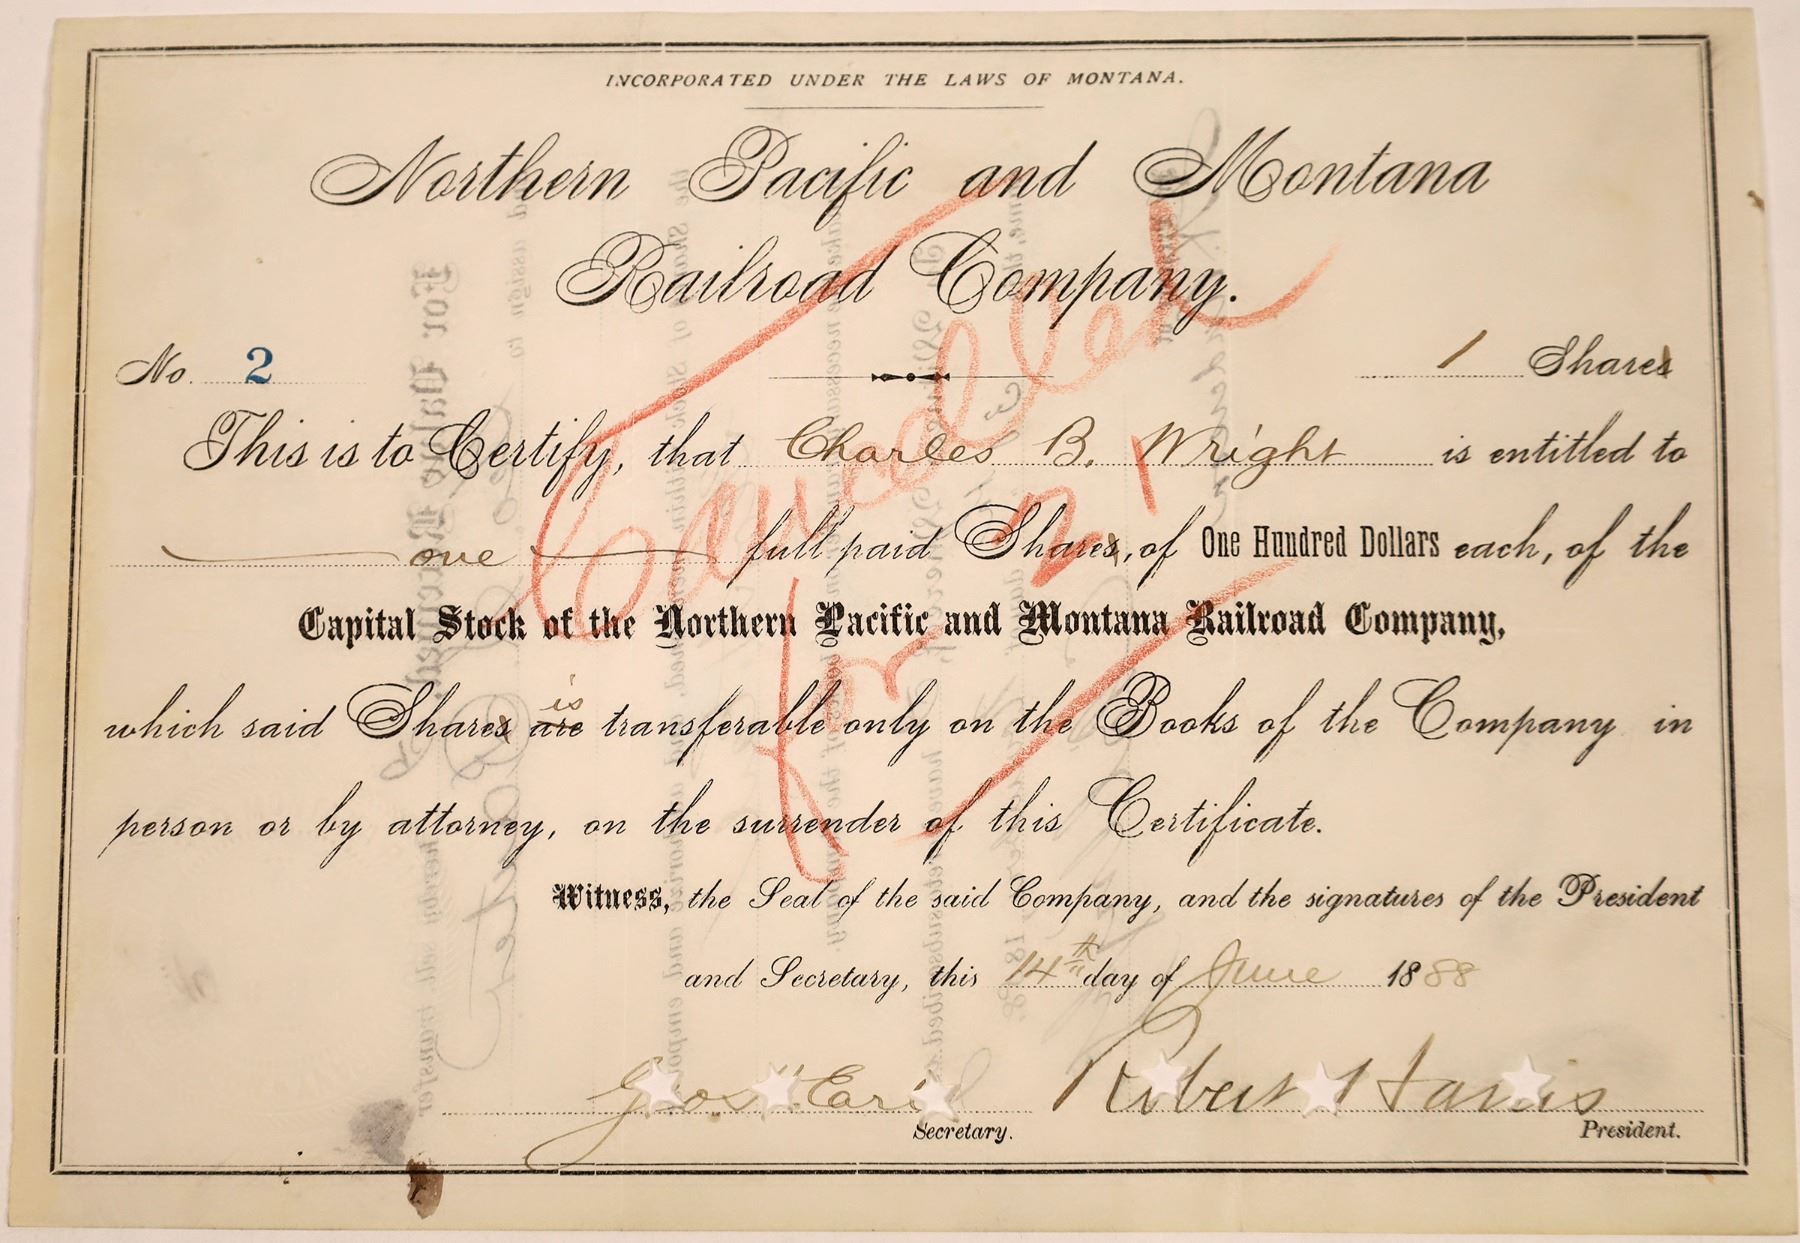 INCORPORATED UNDER THE LAWS OF MONTANA.
Northern Pacific and Montana
Railroad Company.
No. 2
1 Shares
This is to Certify, that Charles B. Wright is entitled to
one full paid Shares, of One Hundred Dollars each, of the
Capital Stock of the Northern Pacific and Montana Railroad Company,
which said Shares are is transferable only on the Books of the Company in
person or by attorney, on the surrender of this Certificate.
Witness, the Seal of the said Company, and the signatures of the President
and Secretary, this 14th day of June 1888
Robert Harris
Secretary.
President.
Cancelled
for 21